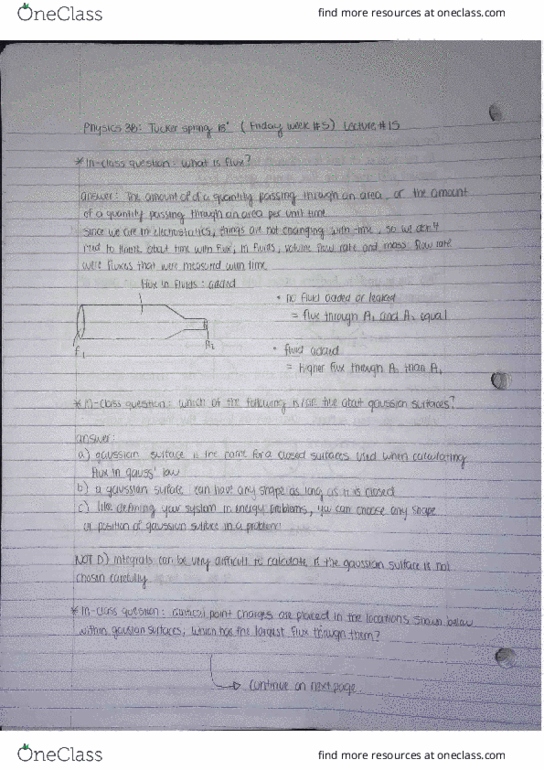 OneClass
find more resources at oneclass.com
Physics 3B: Tucker spring 18' (Friday week #5) Lecture #15
* In-class question: what is flux?
answer: The amount of of a quantity passing through an area, or the amount
of a quantity passing through an area per unit time
since we are in electrostatics, things are not changing with time, so we don't
need to think about time with flux, in fluids, volume flow rate and mass flow rate
were fluxes that were measured with time
flux in fluids: added
• no fluid added or leaked
= flux through A₁ and A₂ equal
A₂
• fluid added
= higher flux through A₂ than A₁
* In-class question: which of the following is/are true about gaussian surfaces?
answer:
a) gaussian surface is the name for a closed surfaces used when calculating
flux in gauss' law
b) a gaussian surface can have any shape as long as it is closed
c) like defining your system in energy problems, you can choose any shape
or position of gaussian surface in a problem
NOT D) integrals can be very difficult to calculate if the gaussian surface is not
chosen carefully
* In-class question: identical point charges are placed in the locations shown below
within gaussian surfaces, which has the largest flux through them?
continue on next page
OneClass
find more resources at oneclass.com